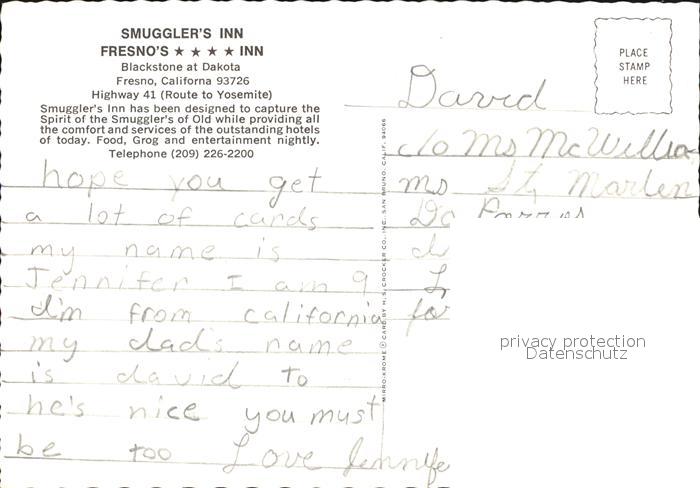 SMUGGLER'S INN
FRESNO'S ★ ★ ★ ★ INN
Blackstone at Dakota
Fresno, Californa 93726
Highway 41 (Route to Yosemite)
Smuggler's Inn has been designed to capture the
Spirit of the Smuggler's of Old while providing all
the comfort and services of the outstanding hotels
of today. Food, Grog and entertainment nightly.
Telephone (209) 226-2200
hope you get
a lot of cards
my name is
Jennifer I am 9
I'm from california
my dad's name
is david to
he's nice you must
be too Love Jennife
MIRRO-KROME ® CARD BY H. S. CROCKER CO., INC., SAN BRUNO, CALIF. 94066
PLACE
STAMP
HERE
David
c/o Ms McWillia
ms St, Marten
privacy protection
Datenschutz